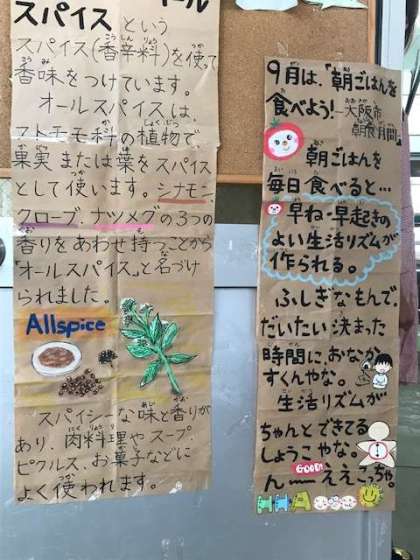 スパイス という
スパイス(香辛料)を使って
香味をつけています。
オールスパイスは、
フトモモ科の植物で、
果実または葉をスパイス
として使います。シナモン、
クローブ、ナツメグの3つの
香りをあわせ持つことから
「オールスパイス」と名づけ
られました。
Allspice
スパイシーな味と香りが
あり、肉料理やスープ、
ピクルス、お菓子などに
よく使われます。
9月は、「朝ごはんを
食べよう!」大阪市
朝食月間
朝ごはんを
毎日食べると…
早ね・早起きの
よい生活リズムが
作られる。
ふしぎなもんで、
だいたい決まった
時間に、おなか
すくんやな。
生活リズムが
ちゃんとできてる
しょうこやな。
GOOD!
んーええこっちゃ。